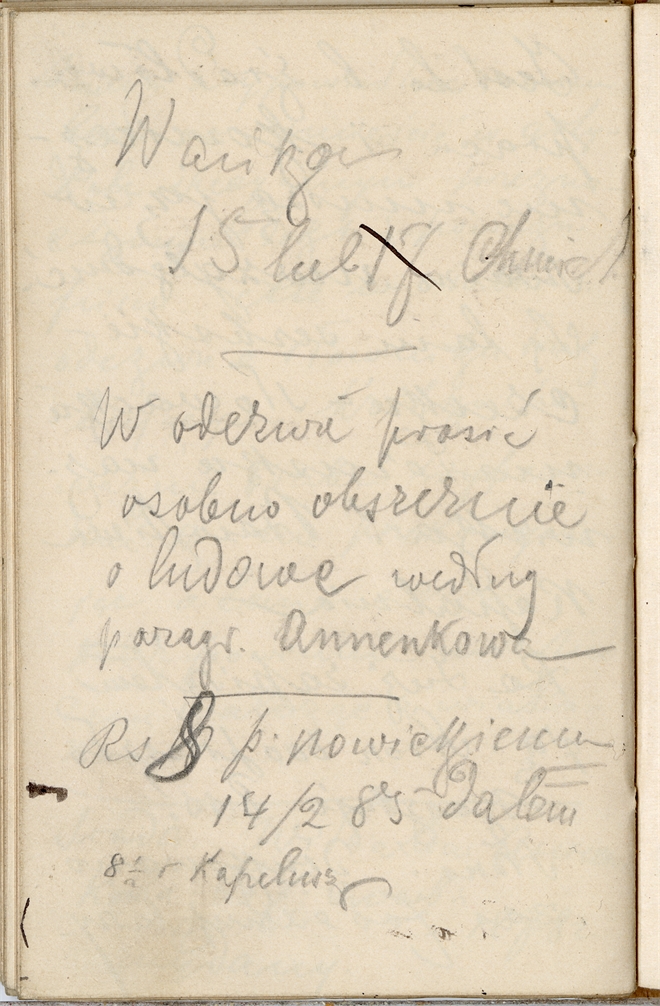 15 lub 17
W odezwie prosić
osobno obszernie
o ludowe według
paragr. Annenkowa
Rs 8 p. Nowickiemu
14/2 85 Dałem
8 1/2 r Kapelusz